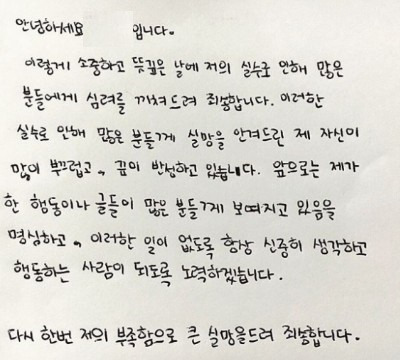 안녕하세요 입니다.
이렇게 소중하고 뜻깊은 날에 저의 실수로 인해 많은
분들에게 심려를 끼쳐드려 죄송합니다. 이러한
실수로 인해 많은 분들께 실망을 안겨드린 제 자신이
많이 부끄럽고, 깊이 반성하고 있습니다. 앞으로는 제가
한 행동이나 글들이 많은 분들께 보여지고 있음을
명심하고, 이러한 일이 없도록 항상 신중히 생각하고
행동하는 사람이 되도록 노력하겠습니다.
다시 한번 저의 부족함으로 큰 실망을드려 죄송합니다.